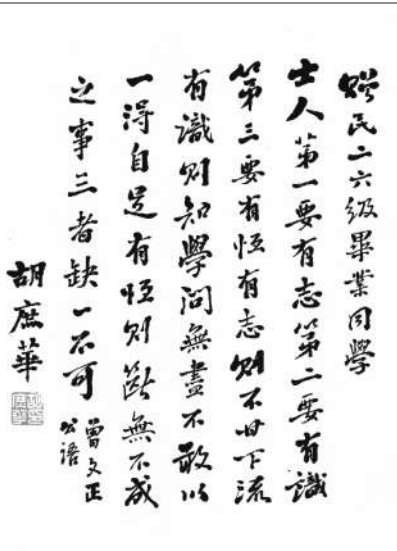 贈民二六級畢業同學
士人第一要有志第二要有識
第三要有恆有志則不甘下流
有識則知學問無盡不敢以
一得自足有恆則斷無不成
之事三者缺一不可
曾文正
公語
胡庶華